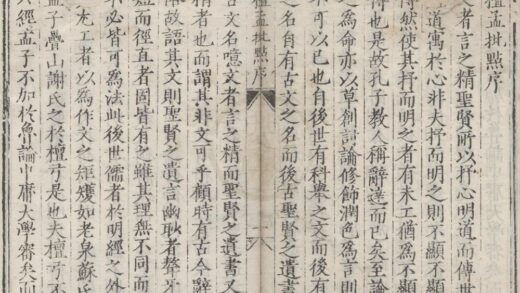 檀孟批點序
文者言之精聖賢所以抒心明道而傳世
道寓於心非夫抒而明之則不顯不顯
傳然使其抒而明之者有未工猶為不顯
傳也是故孔子教人稱辭達而已矣至論
之為命亦以草創討論修飾潤色為言則
不可以已也自後世有科舉之文而後有
之名自有古文之名而後古聖賢之遺書
古文名噫文者言之精而聖賢之遺書又
精者也而謂其非文可乎顧時有古今辭
降故語其文則聖賢之遺言幽耿者聱牙
短而徑直者固皆有之雖其理無不同而
不必皆可為法此後世儒者於明經之外
尤工者以為作文之矩矱如老泉蘇氏
孟子疊山謝氏之於檀弓是也夫檀弓不
六經孟子不加於魯論中庸大學審矣而